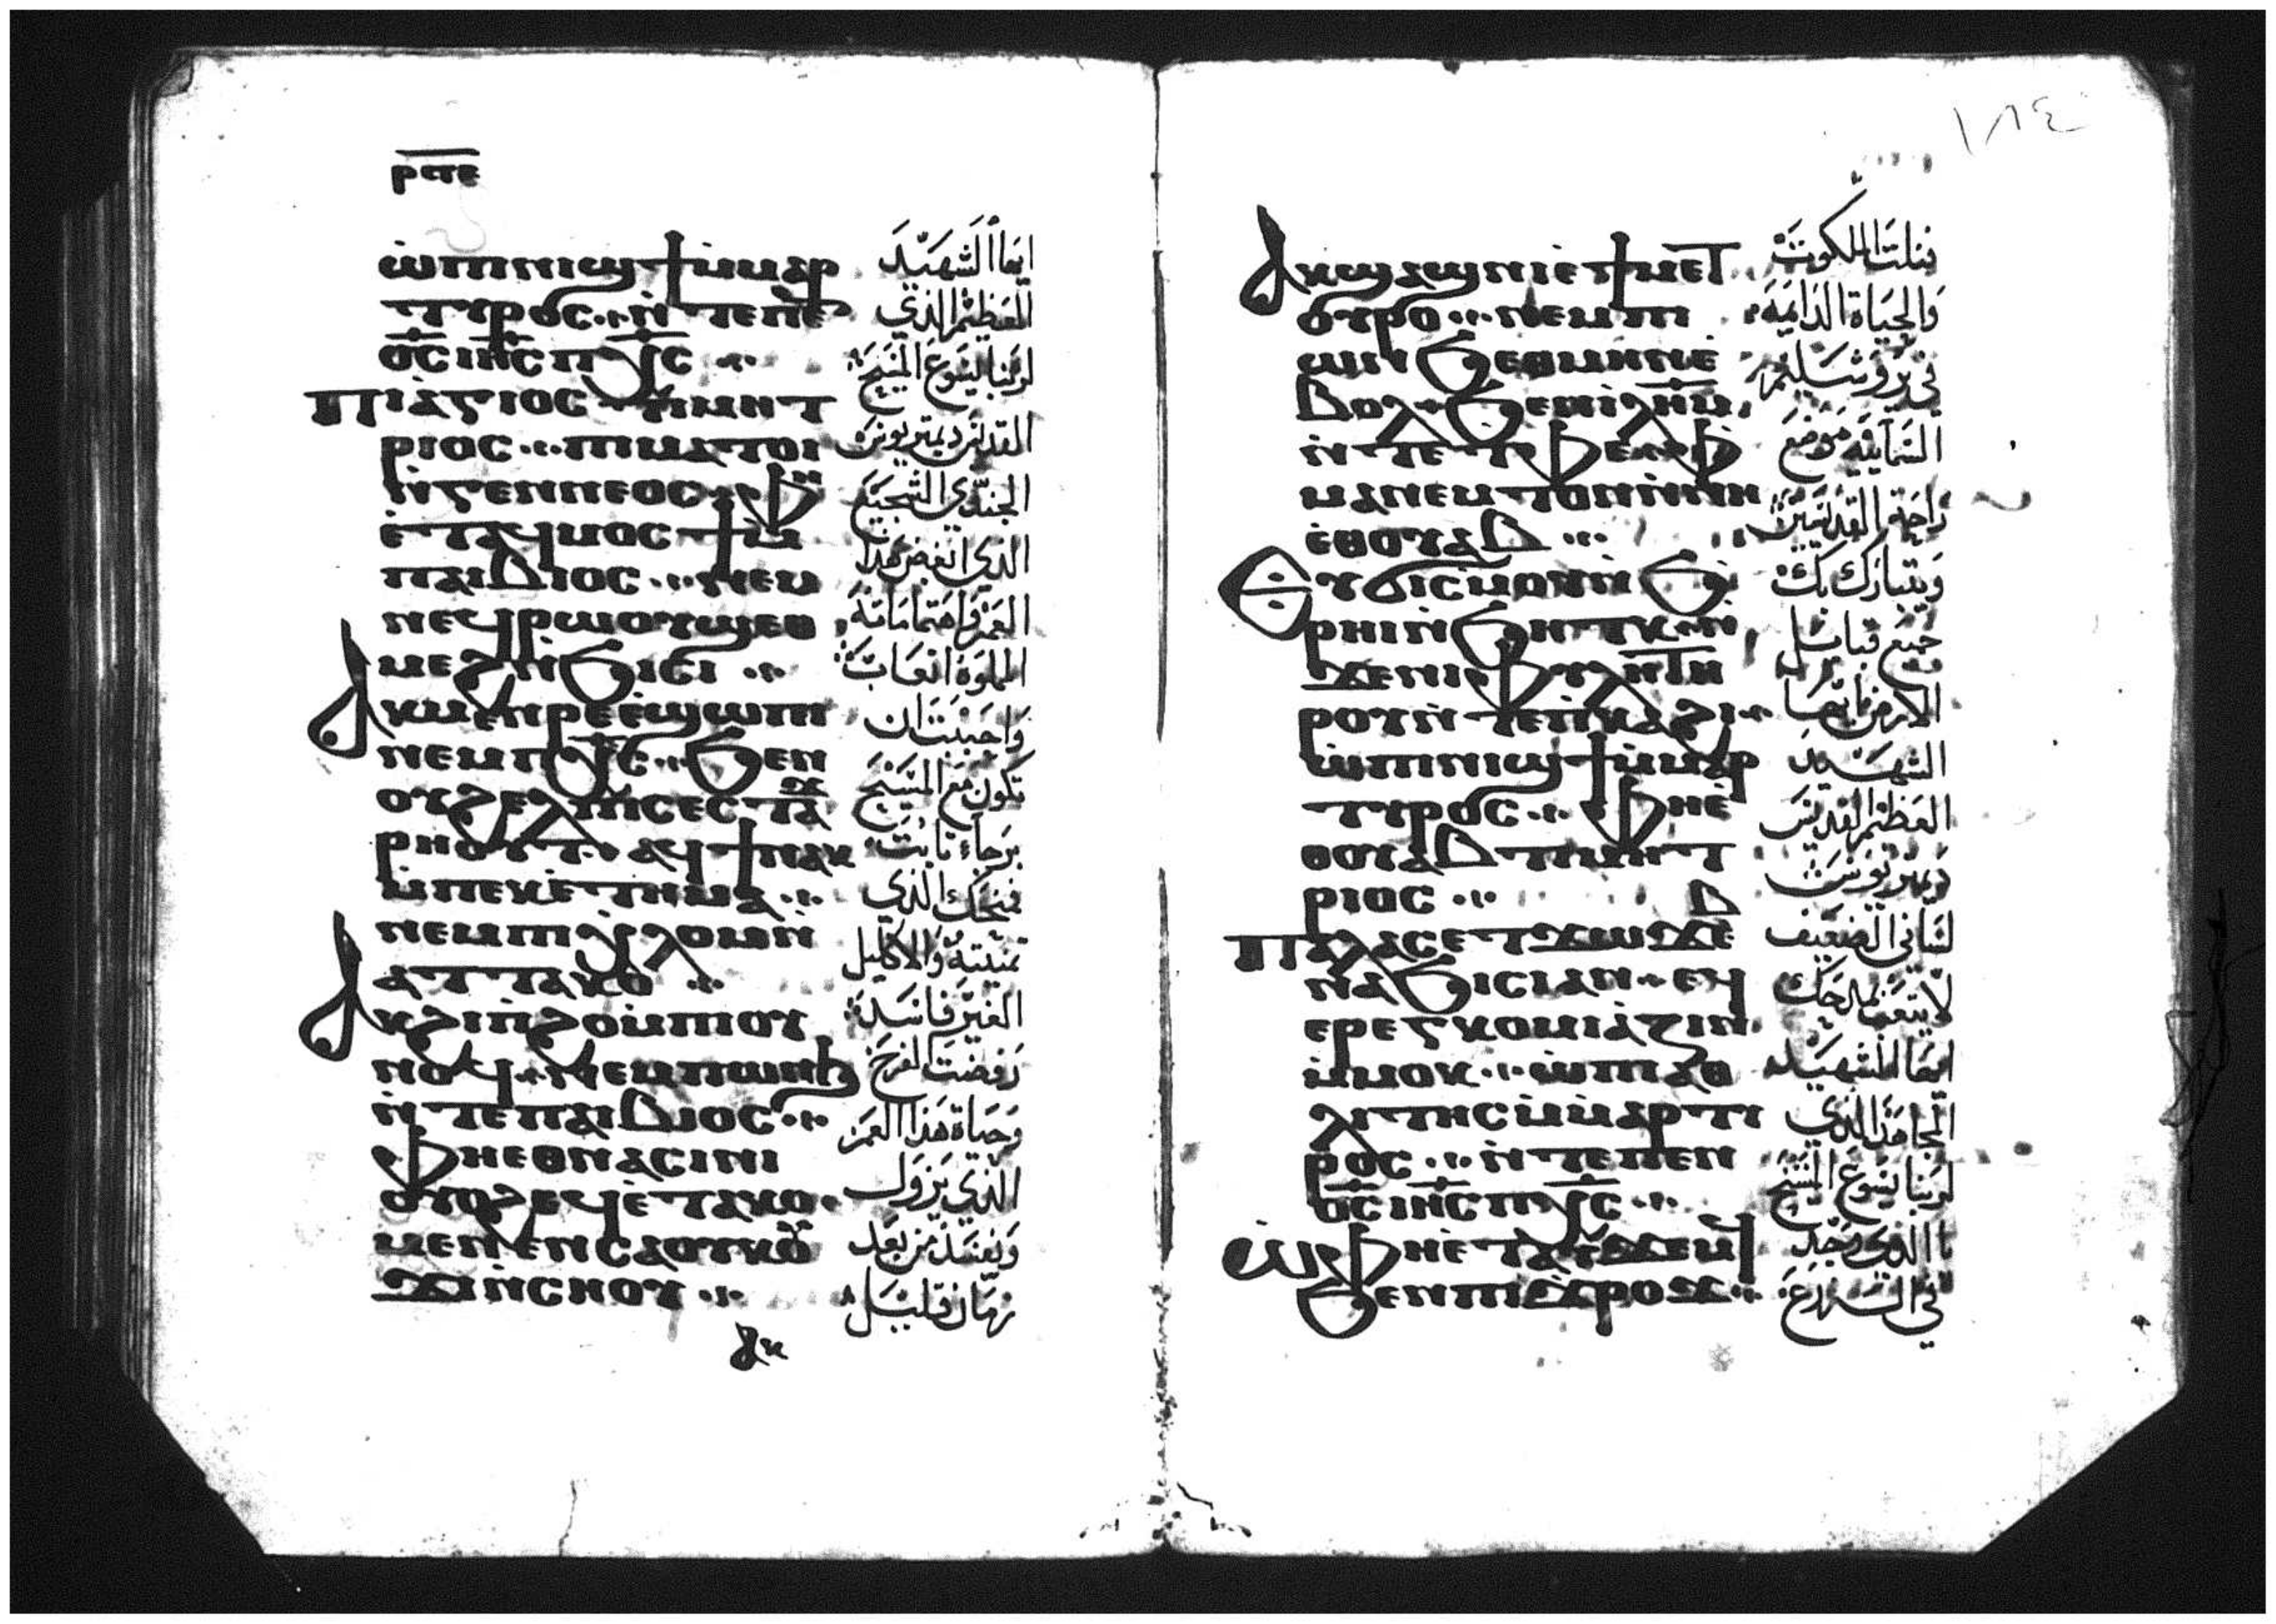 ⲣⲡⲉ
ⲱ̀ⲡⲓⲛⲓϣϯ ⲙ̀ⲙⲁⲣ
ⲧⲩⲣⲟⲥ ⁘ ⲛ̀ⲧⲉ ⲡⲉⲛ
ⲟ̅ⲥ̅ ⲓⲏ̅ⲥ̅ ⲡⲭ̅ⲥ̅ ⁘
ⲡⲓⲁ̀ⲅⲓⲟⲥ ⲇⲓⲙⲏⲧ
ⲣⲓⲟⲥ ⁘ ⲡⲓⲙⲁⲧⲟⲓ
ⲛ̀ⲅⲉⲛⲛⲉⲟⲥ ⲫⲏ
ⲉ̀ⲧⲁϥⲙⲟⲥϯ ⲙ̀
ⲡⲁⲓⲃⲓⲟⲥ ⁘ ⲛⲉⲙ
ⲛⲉϥⲣⲱⲟⲩϣ ⲉⲑ
ⲙⲉϩ ⲛ̀ϧⲓⲥⲓ ⁘
ⲁⲕⲙⲉⲛⲣⲉ ⲉ̀ϣⲱⲡⲓ
ⲛⲉⲙ ⲡⲭ̅ⲥ̅ ⁘ ϧⲉⲛ
ⲟⲩϩⲉⲗⲡⲓⲥ ⲉⲥⲧⲁϫ
ⲣⲏⲟⲩⲧ ⲁϥϯ ⲛⲁⲕ
ⲙ̀ⲡⲉⲕⲉ̀ⲧⲏⲙⲁ ⁘
ⲛⲉⲙ ⲡⲓⲭⲗⲟⲙ ⲛ̀
ⲁⲧⲧⲁⲕⲟ ⁘
ⲁⲕϩⲓⲡ̀ϩⲟ ⲙ̀ⲡⲓⲟⲩ
ⲛⲟϥ ⁘ ⲛⲉⲙ ⲡⲱⲛϧ
ⲛ̀ⲧⲉ ⲡⲁⲓⲃⲓⲟⲥ ⁘
ⲫⲏⲉⲑⲛⲁⲥⲓⲛⲓ
ⲟⲩⲟϩ ⲉϥⲉ̀ⲧⲁⲕⲟ
ⲙⲉⲛⲉⲛⲥⲁ ⲟⲩⲕⲟⲩ
ϫⲓ ⲛ̀ⲥⲏⲟⲩ ⁘
ⲁⲕ
ايها الشهيد
العظيم الذي
لربنا يسوع المسيح
القديس ديمتريوس
الجندي الشجيع
الذي ابغض هذا
العمر واهتماماته
المملوة اتعاب
واحببت ان
تكون مع المسيح
برجاء ثابت
فمنحك الذي
تمنيته والاكليل
الغير فاسد
رفضت الفرح
وحياة هذا العمر
الذي يزول
ويفسد من بعد
زمان قليل
١٨٤
ⲁⲕϣⲁϣⲛⲓ ⲉ̀ϯⲙⲉⲧ
ⲟⲩⲣⲟ ⁘ ⲛⲉⲙ ⲡⲓ
ⲱⲛϧ ⲉⲑⲙⲏⲛ ⲉ̀
ⲃⲟⲗ ϧⲉⲛ ⲓ̀ⲗ̅ⲏ̅ⲙ̅
ⲛ̀ⲧⲉ ⲧ̀ⲫⲉ ⲫ̀
ⲙⲁ ⲛⲉⲙⲧⲟⲛ ⲛ̀ⲛⲏ
ⲉ̀ⲑⲟⲩⲁⲃ ⁘
ⲉⲩϭⲓⲥⲙⲟⲩ ⲛ̀ϧ̀
ⲣⲏⲓ ⲛ̀ϧⲏⲧⲕ ⲛ̀
ϫⲉ ⲛⲓⲫⲩⲗⲏ ⲧⲏ
ⲣⲟⲩ ⲛ̀ⲧⲉ ⲡ̀ⲕⲁϩⲓ ⁘
ⲱ̀ⲡⲓⲛⲓϣϯ ⲙ̀ⲙⲁⲣ
ⲧⲩⲣⲟⲥ ⁘ ⲫⲏⲉ̀
ⲑⲟⲩⲁⲃ ⲇⲓⲙⲏⲧ
ⲣⲓⲟⲥ ⁘
ⲡⲁⲗⲁⲥ ⲉⲧϫⲱϫⲉⲃ
ⲛⲁϧⲓⲥⲓ ⲁⲛ ⁘ ⲉϥ
ⲉⲣⲉⲅⲕⲟⲙⲓⲁⲍⲓⲛ
ⲙ̀ⲙⲟⲕ ⁘ ⲱ̀ⲡⲓⲁⲑ
ⲗⲓⲧⲏⲥ ⲙ̀ⲙⲁⲣⲧⲓ
ⲣⲟⲥ ⁘ ⲛ̀ⲧⲉ ⲡⲉⲛ
ⲟ̅ⲥ̅ ⲓⲏ̅ⲥ̅ ⲡⲭ̅ⲥ̅ ⁘
ⲱ̀ⲫⲏⲉ̀ⲧⲁⲩϫⲉⲙϥ
ϧⲉⲛ ⲡⲓⲇⲣⲟⲙ
فنلت الملكوت
والحياة الدايمة
في يروشليم
السمايية موضع
راحة القديسين
ويتبارك بك
جميع قبايل
الارض ايها
الشهيد
العظيم القديس
ديمتريوس
لساني الضعيف
لا يتعب بمدحك
ايها الشهيد
المجاهد الذي
لربنا يسوع المسيح
يا الذي وجد
في